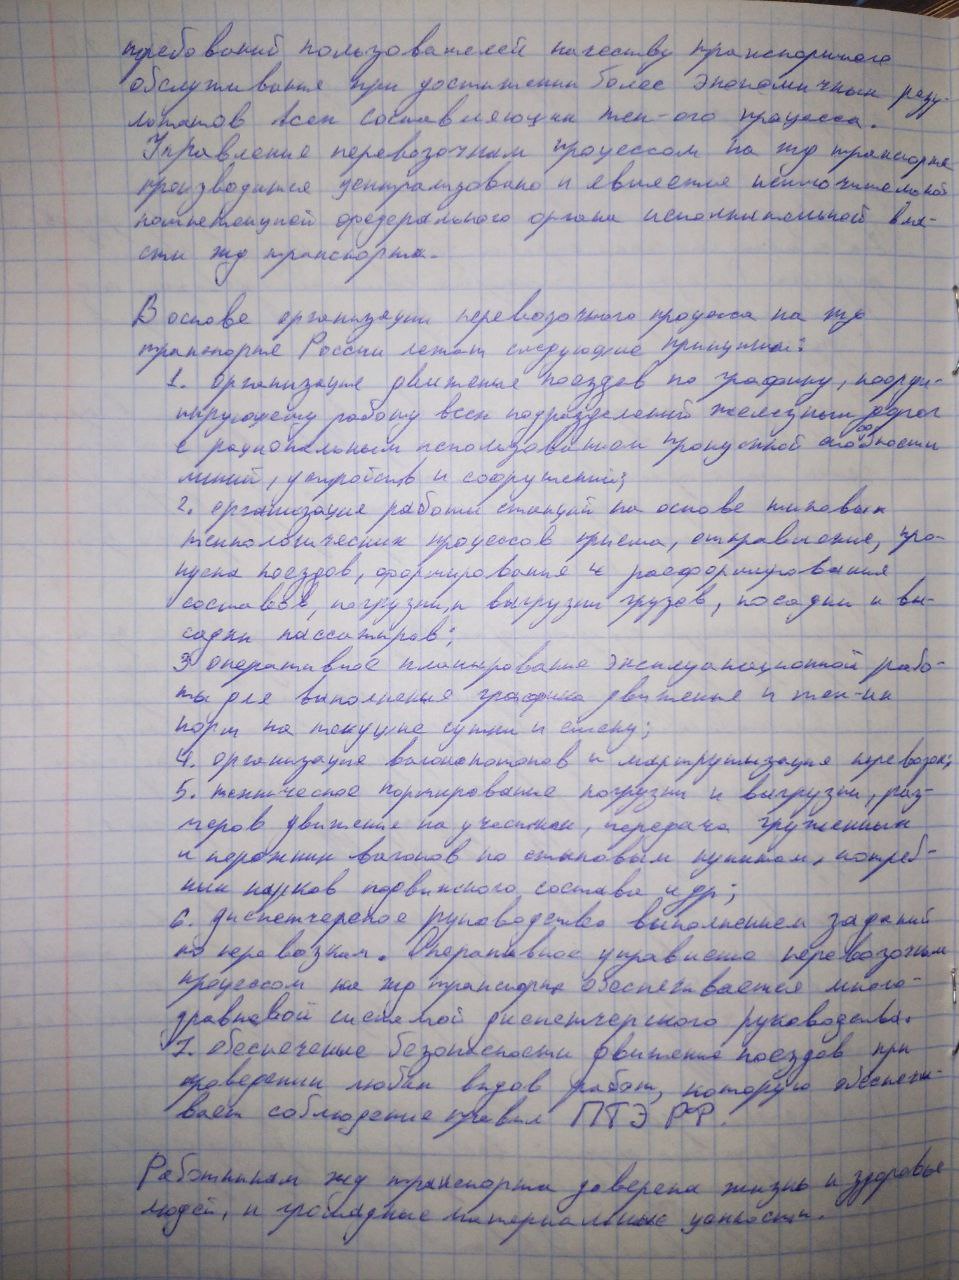 требований пользователей качеству транспортного
обслуживания при достижении более экономичных резу-
льтатов всех составляющих тех-ого процесса.
Управление перевозочным процессом на жд транспорте
производится централизовано и является исключительной
компетенцией федерального органа исполнительной вла-
сти жд транспорта.
В основе организации перевозочного процесса на жд
транспорте России лежат следующие принципы:
1. организация движения поездов по графику, коорди-
нирующему работу всех подразделений железных дорог
с рациональным использованием пропускной способности
линий, устройств и сооружений;
2. организация работы станций на основе типовых
технологических процессов приема, отправление, про-
пуска поездов, формирования и расформирования
составов, погрузки, и выгрузки грузов, посадки и вы-
садки пассажиров;
3 оперативное планирование эксплуатационной рабо-
ты для выполнения графика движения и тех-их
норм на текущие сутки и смену;
4. организация вагонопотоков и маршрутизация перевозок;
5. техническое нормирование погрузки и выгрузки, раз-
меров движение на участках, передача груженных
и порожних вагонов по стыковым пунктам, потреб-
них парков подвижного состава и др;
6. диспетчерское руководство выполнением заданий
по перевозкам. Оперативное управление перевозочным
процессом на жд транспорте обеспечивается много-
уровневой системой диспетчерского руководства.
7. обеспечение безопасности движение поездов при
проведении любых видов работ, которую обеспечи-
вает соблюдение правил ПТЭ РФ.
Работникам жд транспорта доверена жизнь и здоровье
людей, и громадные материальные ценности.